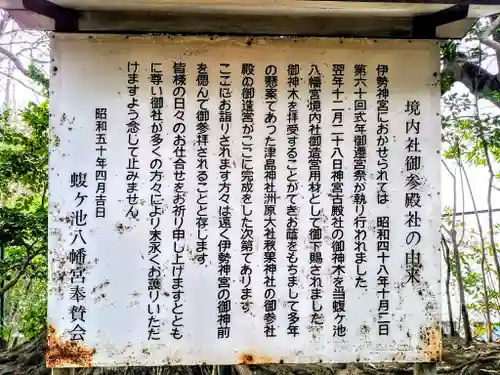 境内社御参殿社の由来
伊勢神宮におかせられては　昭和四十八年十月二日
第六十回式年御遷宮祭が執り行われました
翌年十二月二十八日神宮古殿社の御神木を当蝮ヶ池
八幡宮境内社御造営用材として御下賜されました
御神木を拝受することができお蔭をもちまして多年
の懸案であった津島神社洲原大社秋葉神社の御参社
殿の御造営がここに完成をした次第であります
ここにお詣りされます方々は遠く伊勢神宮の御神前
を偲んで御参拝されることと存します
皆様の日々のお仕合せをお祈り申し上げますととも
に尊い御社が多くの方々により末永くお護りいただ
けますよう念して止みません
昭和五十年四月吉日
蝮ヶ池八幡宮奉賛会